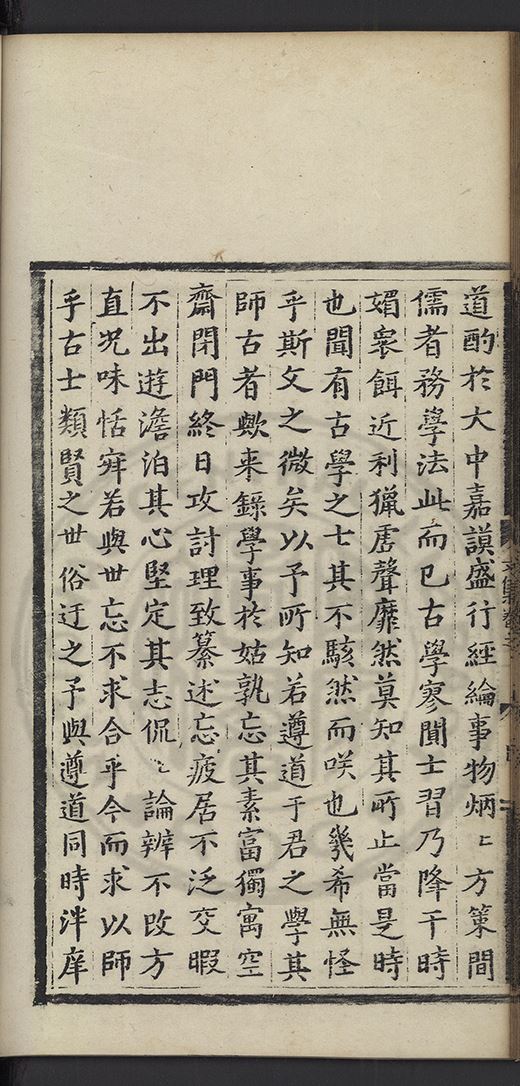 道酌於大中嘉謨盛行經綸事物炳〻方策間
儒者務學法此而已古學寥聞士習乃降干時
媚衆餌近利獵虛聲靡然莫知其所止當是時
也聞有古學之士其不駭然而咲也幾希無怪
乎斯文之微矣以予所知若遵道于君之學其
師古者歟来錄學事於姑孰忘其素富獨寓空
齋閉門終日攻討理致纂述忘疲居不泛交暇
不出遊澹泊其心堅定其志侃〻論辨不改方
直況味恬寂若與世忘不求合乎今而求以師
乎古士類賢之世俗迂之予與遵道同時泮庠